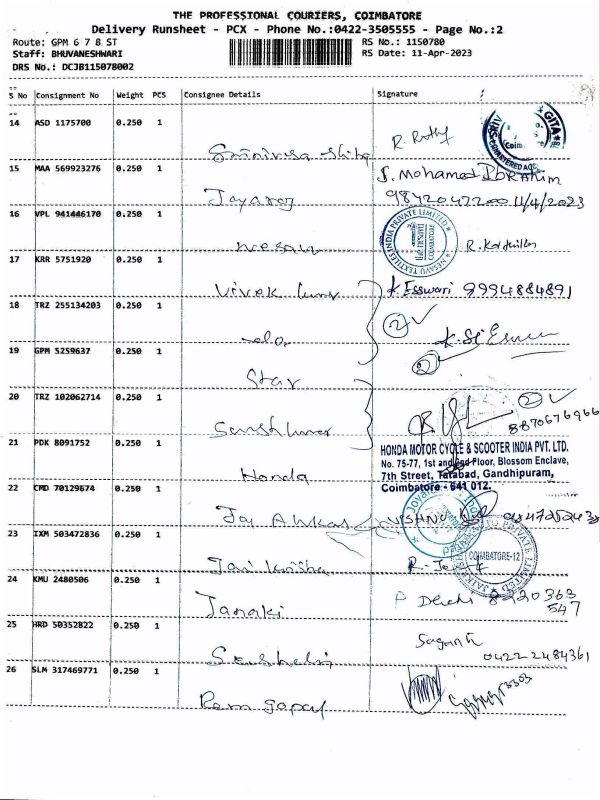 THE PROFESSIONAL COURIERS, COIMBATORE
Delivery Runsheet - PCX - Phone No.:0422-3505555 - Page No.:2
Route: GPM 6 7 8 ST RS No.: 1150780
Staff: BHUVANESHWARI RS Date: 11-Apr-2023
DRS No.: DCJB115078002
S No Consignment No Weight PCS Consignee Details Signature
14 ASD 1175700 0.250 1
GITA
Coim
15 MAA 569923276 0.250 1 S. Mohamed Ibrahim
Jayaraj 9842047200 11/4/2023
16 VPL 941446170 0.250 1
NESAVU TEXTILES INDIA PRIVATE LIMITED
COIMBATORE
17 KRR 5751920 0.250 1
Vivek Kumar K. Esswari 9994884891
18 TRZ 255134203 0.250 1
2
19 GPM 5259637 0.250 1
2
Star
20 TRZ 102062714 0.250 1
2
8870676966
21 PDK 8091752 0.250 1
HONDA MOTOR CYCLE & SCOOTER INDIA PVT. LTD.
No. 75-77, 1st and 2nd Floor, Blossom Enclave,
7th Street, Tatabad, Gandhipuram,
Coimbatore - 641 012.
Honda
22 CMD 70129674 0.250 1
VISHNU
23 IXM 503472836 0.250 1
COIMBATORE-12
24 KMU 2480506 0.250 1
Janaki
547
25 HRD 50352822 0.250 1
0422 2484361
26 SLM 317469771 0.250 1
Ram Gopal